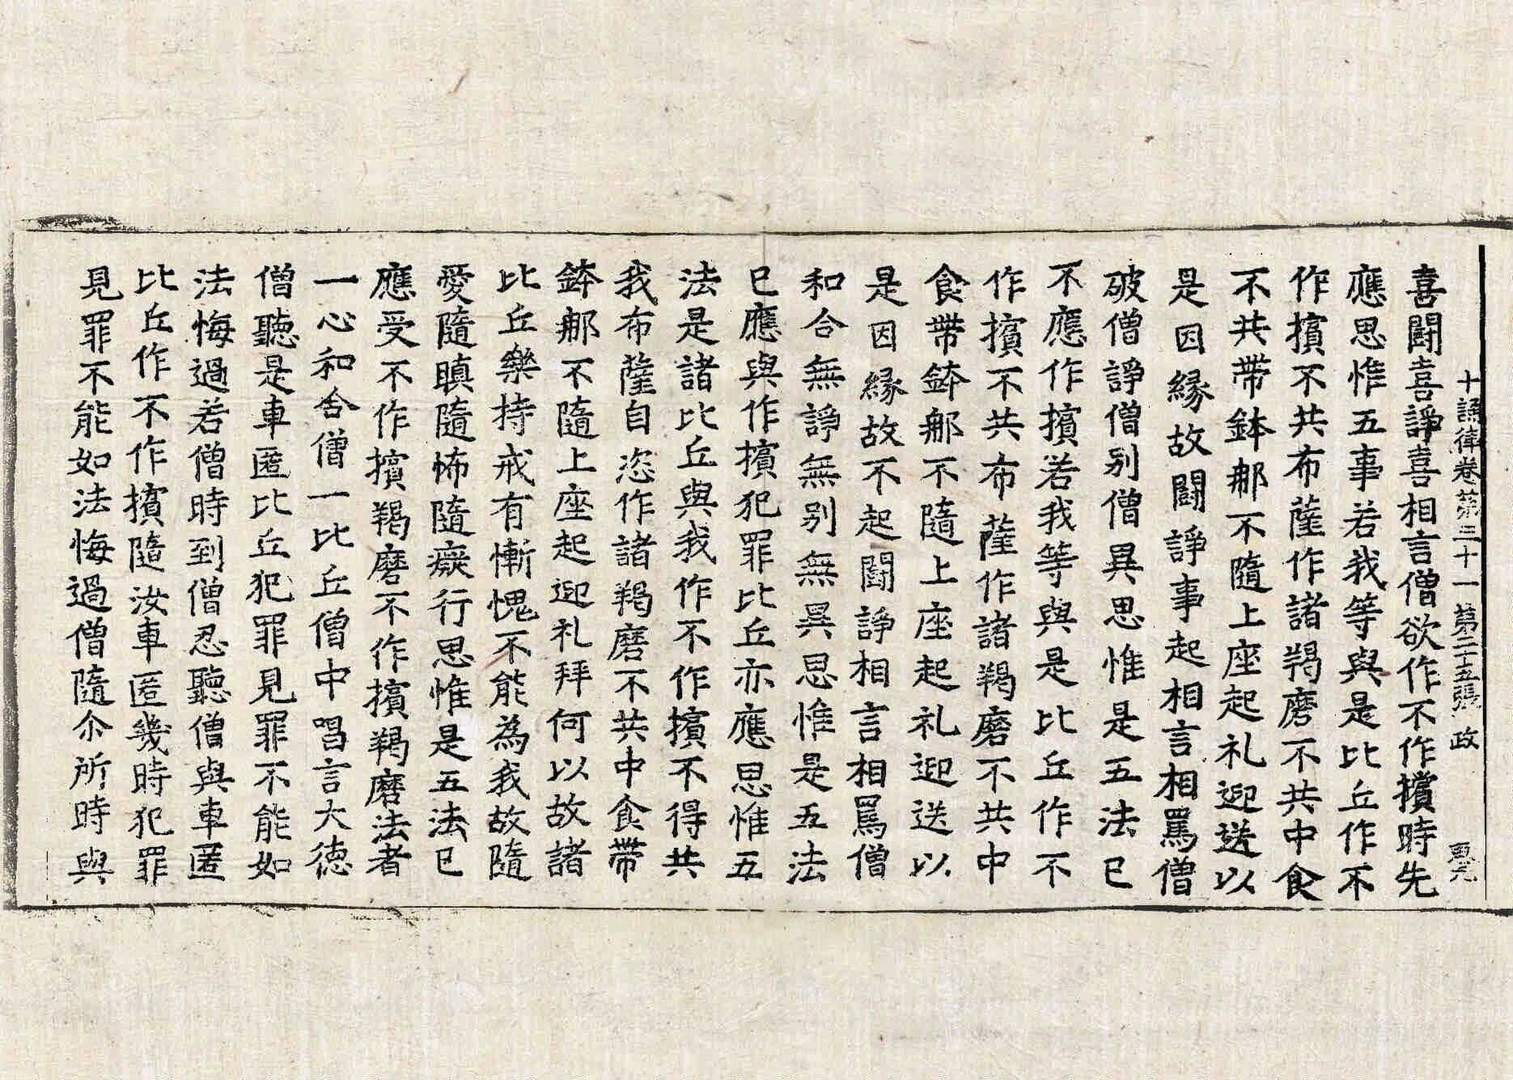 十誦律卷第三十一 第二十五張 政
喜鬪喜諍喜相言僧欲作不作擯時先
應思惟五事若我等與是比丘作不
作擯不共布薩作諸羯磨不共中食
不共帶鉢那不隨上座起礼迎送以
是因緣故鬪諍事起相言相罵僧
破僧諍僧別僧異思惟是五法已
不應作擯若我等與是比丘作不
作擯不共布薩作諸羯磨不共中
食帶鉢那不隨上座起礼迎送以
是因緣故不起鬪諍相言相罵僧
和合無諍無別無異思惟是五法
已應與作擯犯罪比丘亦應思惟五
法是諸比丘與我作不作擯不得共
我布薩自恣作諸羯磨不共中食帶
鉢那不隨上座起迎礼拜何以故諸
比丘樂持戒有慚愧不能為我故隨
愛隨瞋隨怖隨癡行思惟是五法已
應受不作擯羯磨不作擯羯磨法者
一心和合僧一比丘僧中唱言大德
僧聽是車匿比丘犯罪見罪不能如
法悔過若僧時到僧忍聽僧與車匿
比丘作不作擯隨汝車匿幾時犯罪
見罪不能如法悔過僧隨尒所時與